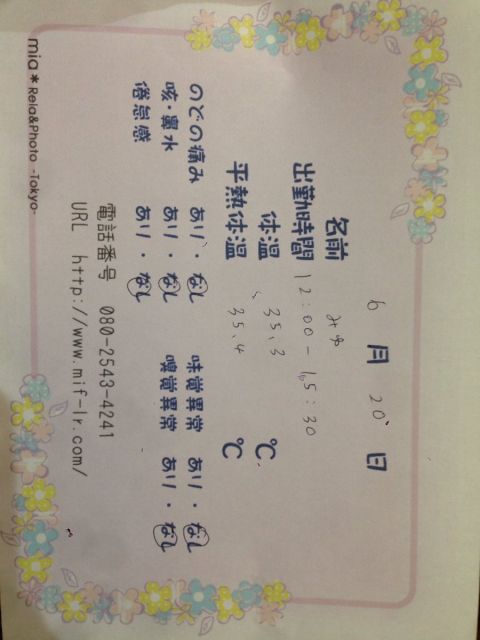 6月20日
名前 みゆ
出勤時間 12:00-15:30
体温 35.3 ℃
平熱体温 35.4 ℃
のどの痛み あり・なし 味覚異常 あり・なし
咳・鼻水 あり・なし 嗅覚異常 あり・なし
倦怠感 あり・なし
電話番号 080-2543-4241
URL http://www.mif-lr.com/
mia＊Rela&Photo -Tokyo-